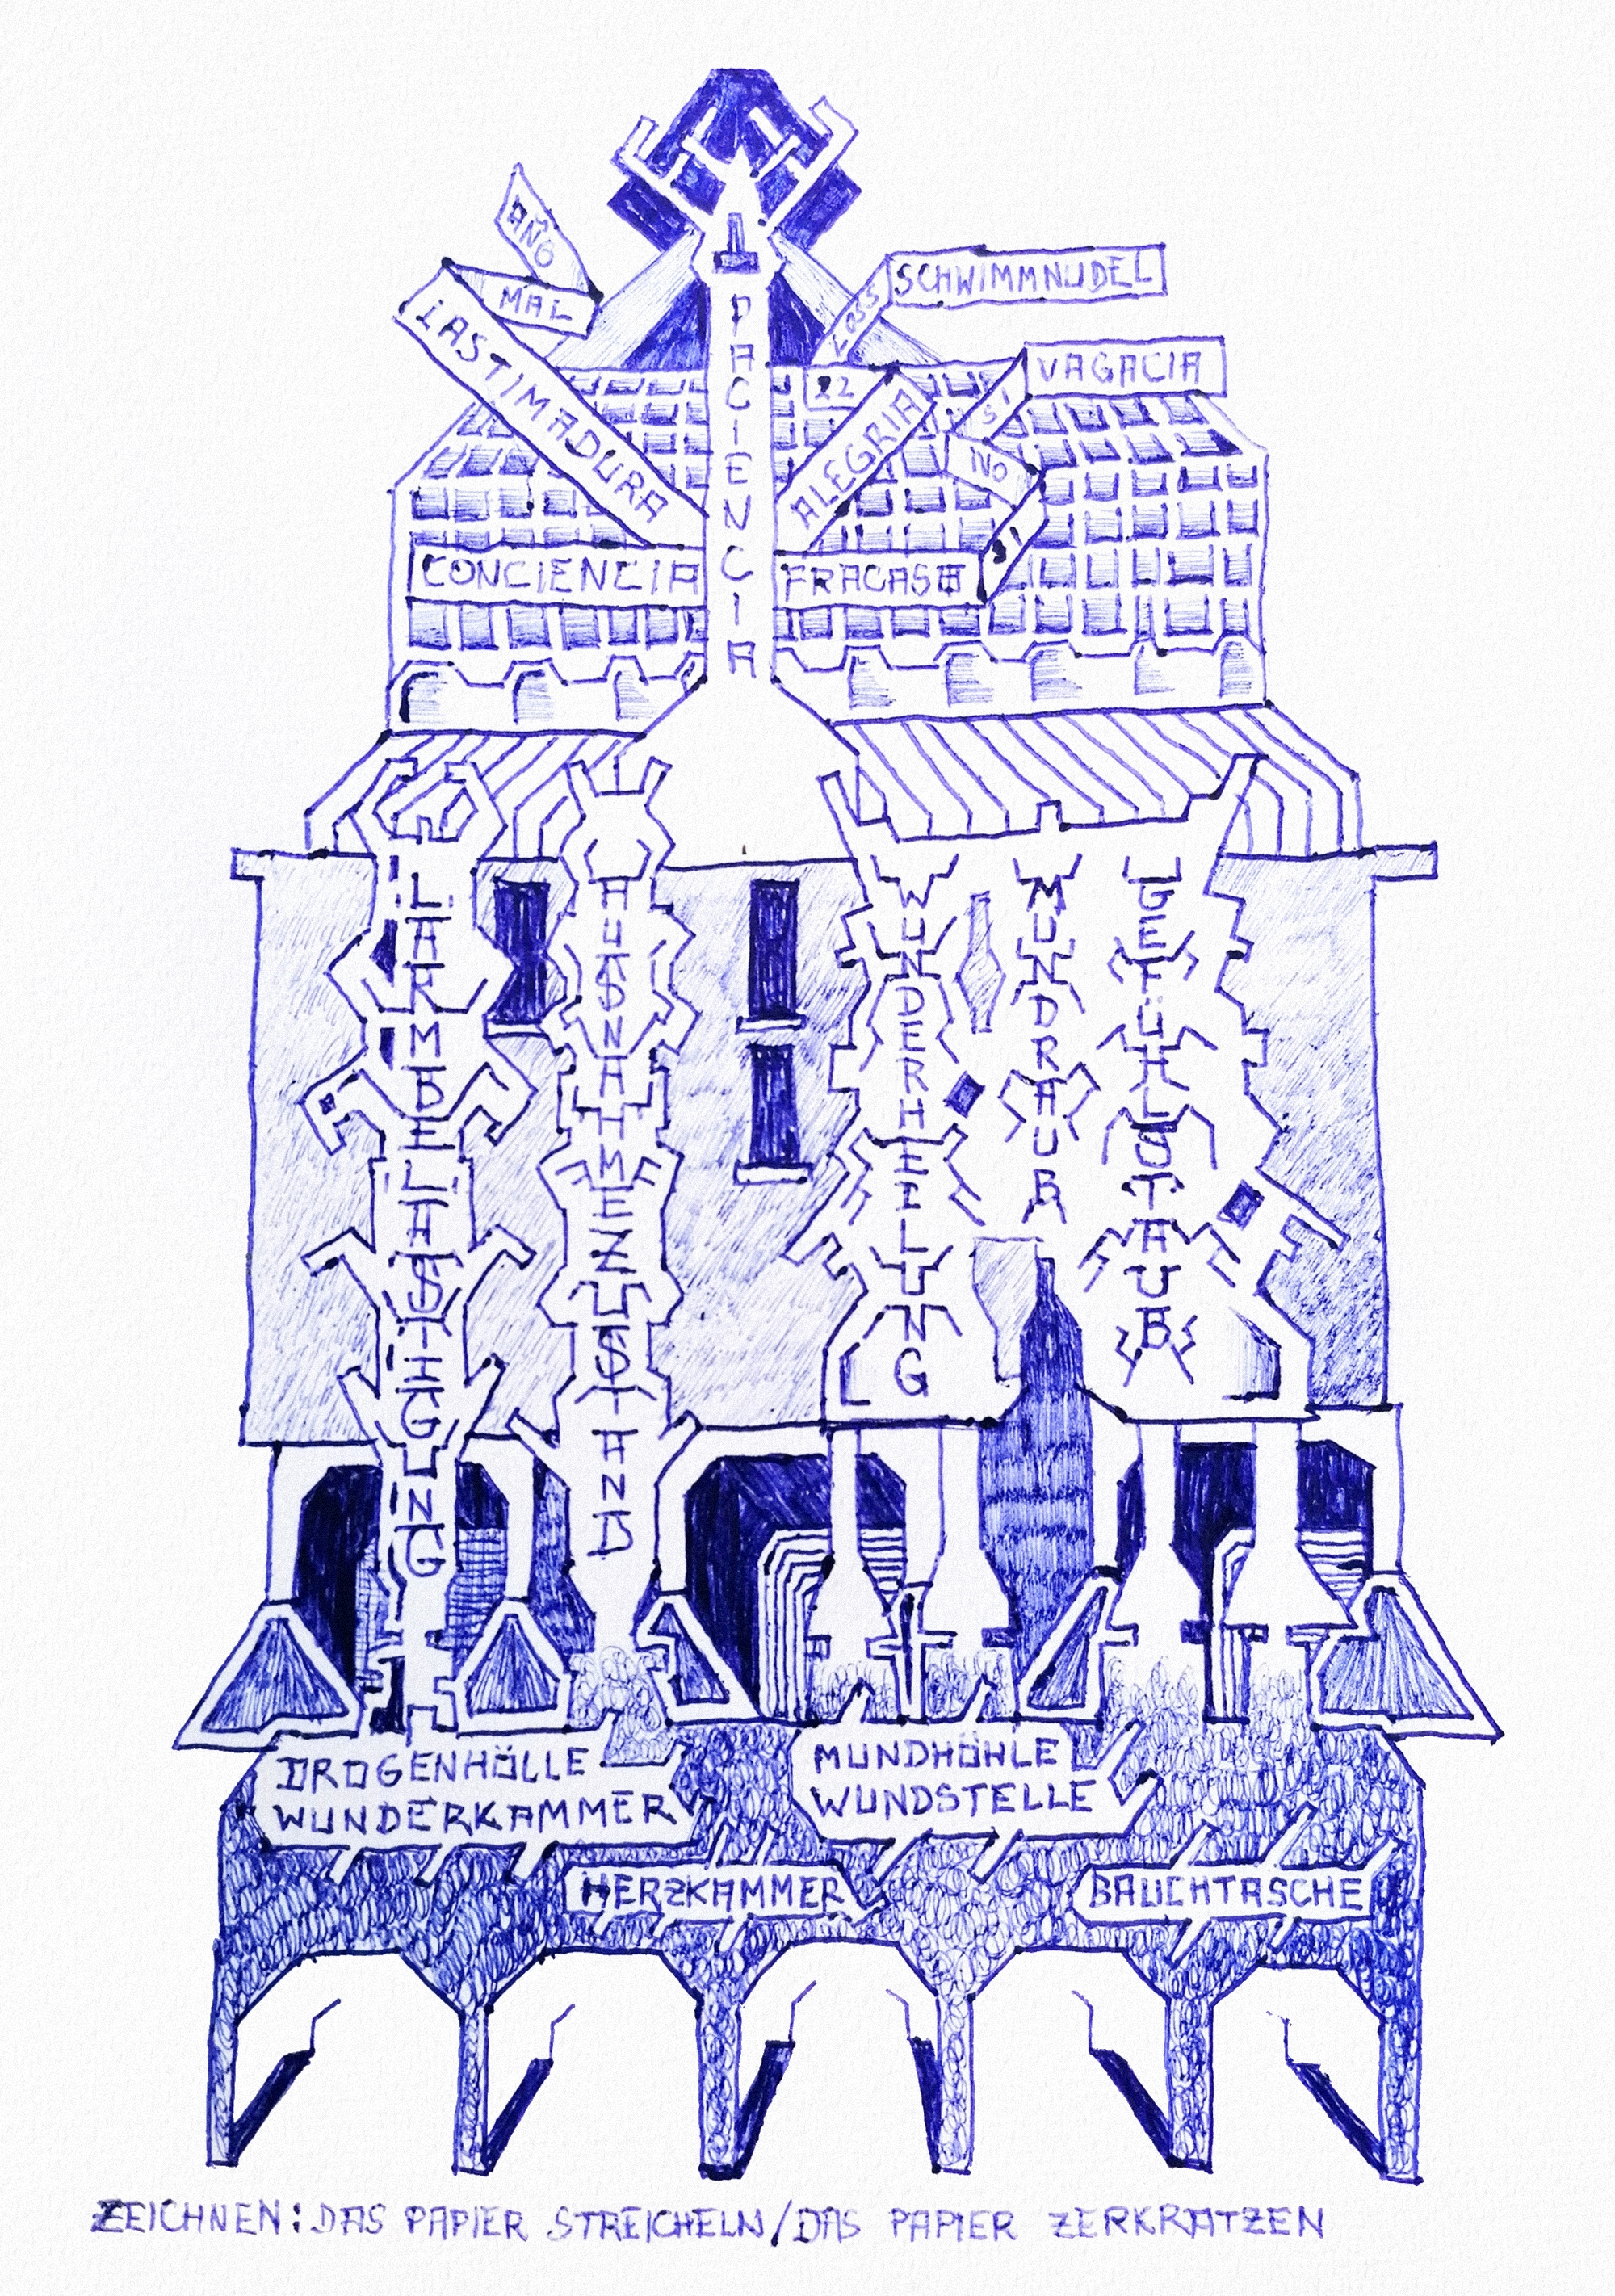 AÑO
MAL
LASTIMADURA
PACIENCIA
SCHWIMMNUDEL
22
ALEGRIA
VAGACIA
SI
NO
SI
CONCIENCIA
FRACASO
LÄRMBELÄSTIGUNG
AUSNAHMEZUSTAND
WUNDERHEILUNG
MUNDRAUB
GEFÜHLSTAUB
DROGENHÖLLE
WUNDERKAMMER
MUNDHÖHLE
WUNDSTELLE
HERZKAMMER
BAUCHTASCHE
ZEICHNEN: DAS PAPIER STREICHELN/DAS PAPIER ZERKRATZEN